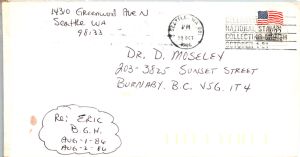 14310 Greenwood Ave N
Seattle WA
98133
SEATTLE, WA
PM
1986
NATIONAL STAMP
COLLECTING MONTH
DR. D. MOSELEY
203-3825 SUNSET STREET
BURNABY, B.C. V5G 1T4
Re: ERIC
B.G.H.
AUG-1-86
AUG-2-86